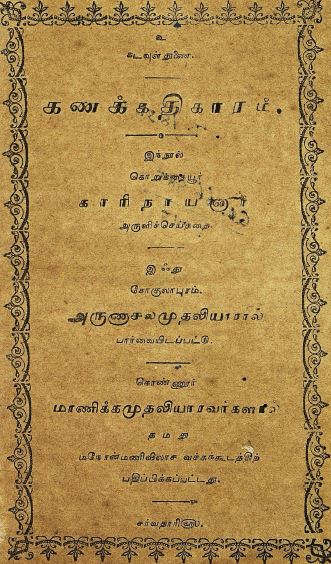 உ
கடவுள் துணை.
கணக்கதிகாரம்.
இந்நூல்
கொறுக்கையூர்
காரிநாயனார்
அருளிச்செய்ததை
இஃது
கோகுலாபுரம்.
அருணாசலமுதலியாரால்
பார்வையிடப்பட்டு.
கொண்ணூர்
மாணிக்கமுதலியாரவர்களது
தமது
மநோன்மணிவிலாச வச்சுக்கூடத்திற்
பதிப்பிக்கப்பட்டது.